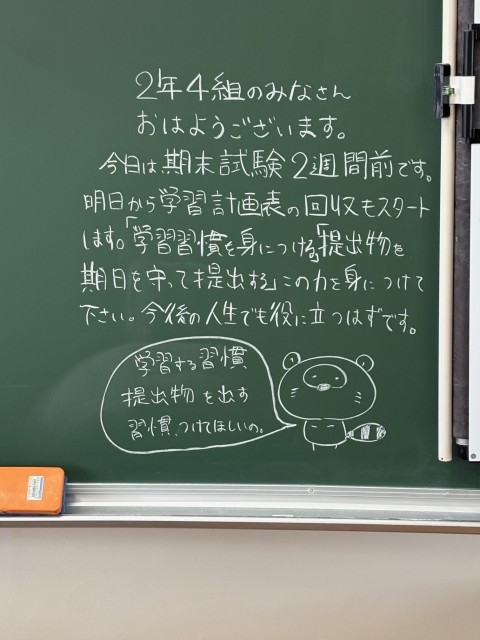 2年4組のみなさん
おはようございます。
今日は期末試験2週間前です。
明日から学習計画表の回収もスタート
します。「学習習慣を身につける」「提出物を
期日を守って提出する」この力を身につけて
下さい。今後の人生でも役に立つはずです。
学習する習慣
提出物を出す
習慣、つけてほしいの。